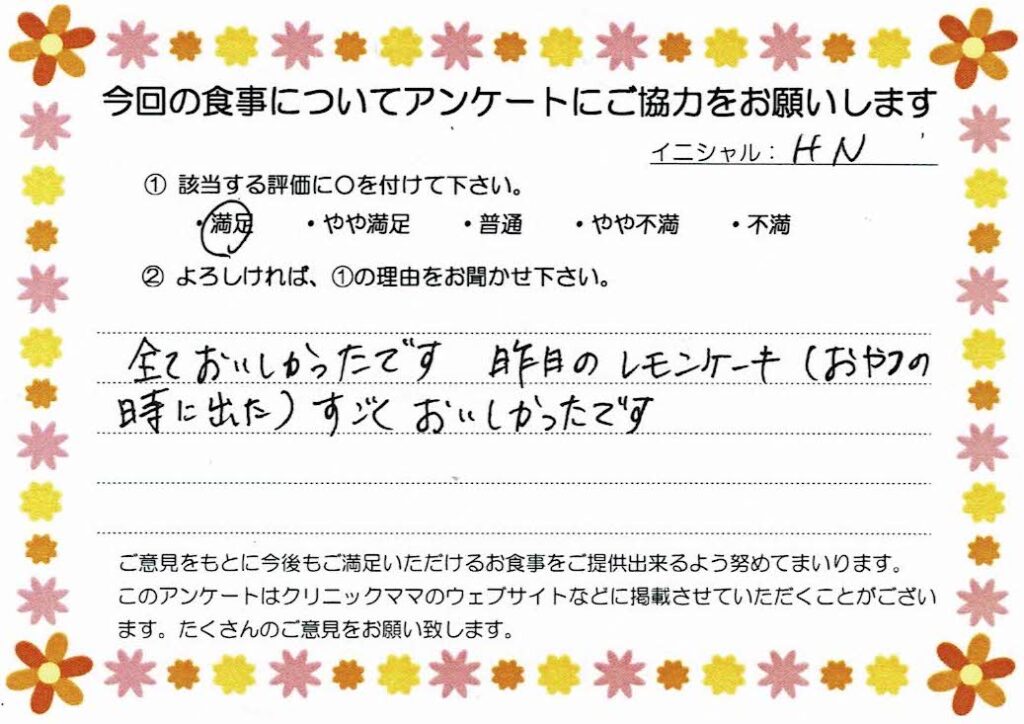 今回の食事についてアンケートにご協力をお願いします
イニシャル： HN
① 該当する評価に○を付けて下さい。
・満足 ・やや満足 ・普通 ・やや不満 ・不満
② よろしければ、①の理由をお聞かせ下さい。
全ておいしかったです 昨日のレモンケーキ（おやつの
時に出た）すごくおいしかったです
ご意見をもとに今後もご満足いただけるお食事をご提供出来るよう努めてまいります。
このアンケートはクリニックママのウェブサイトなどに掲載させていただくことがござい
ます。たくさんのご意見をお願い致します。